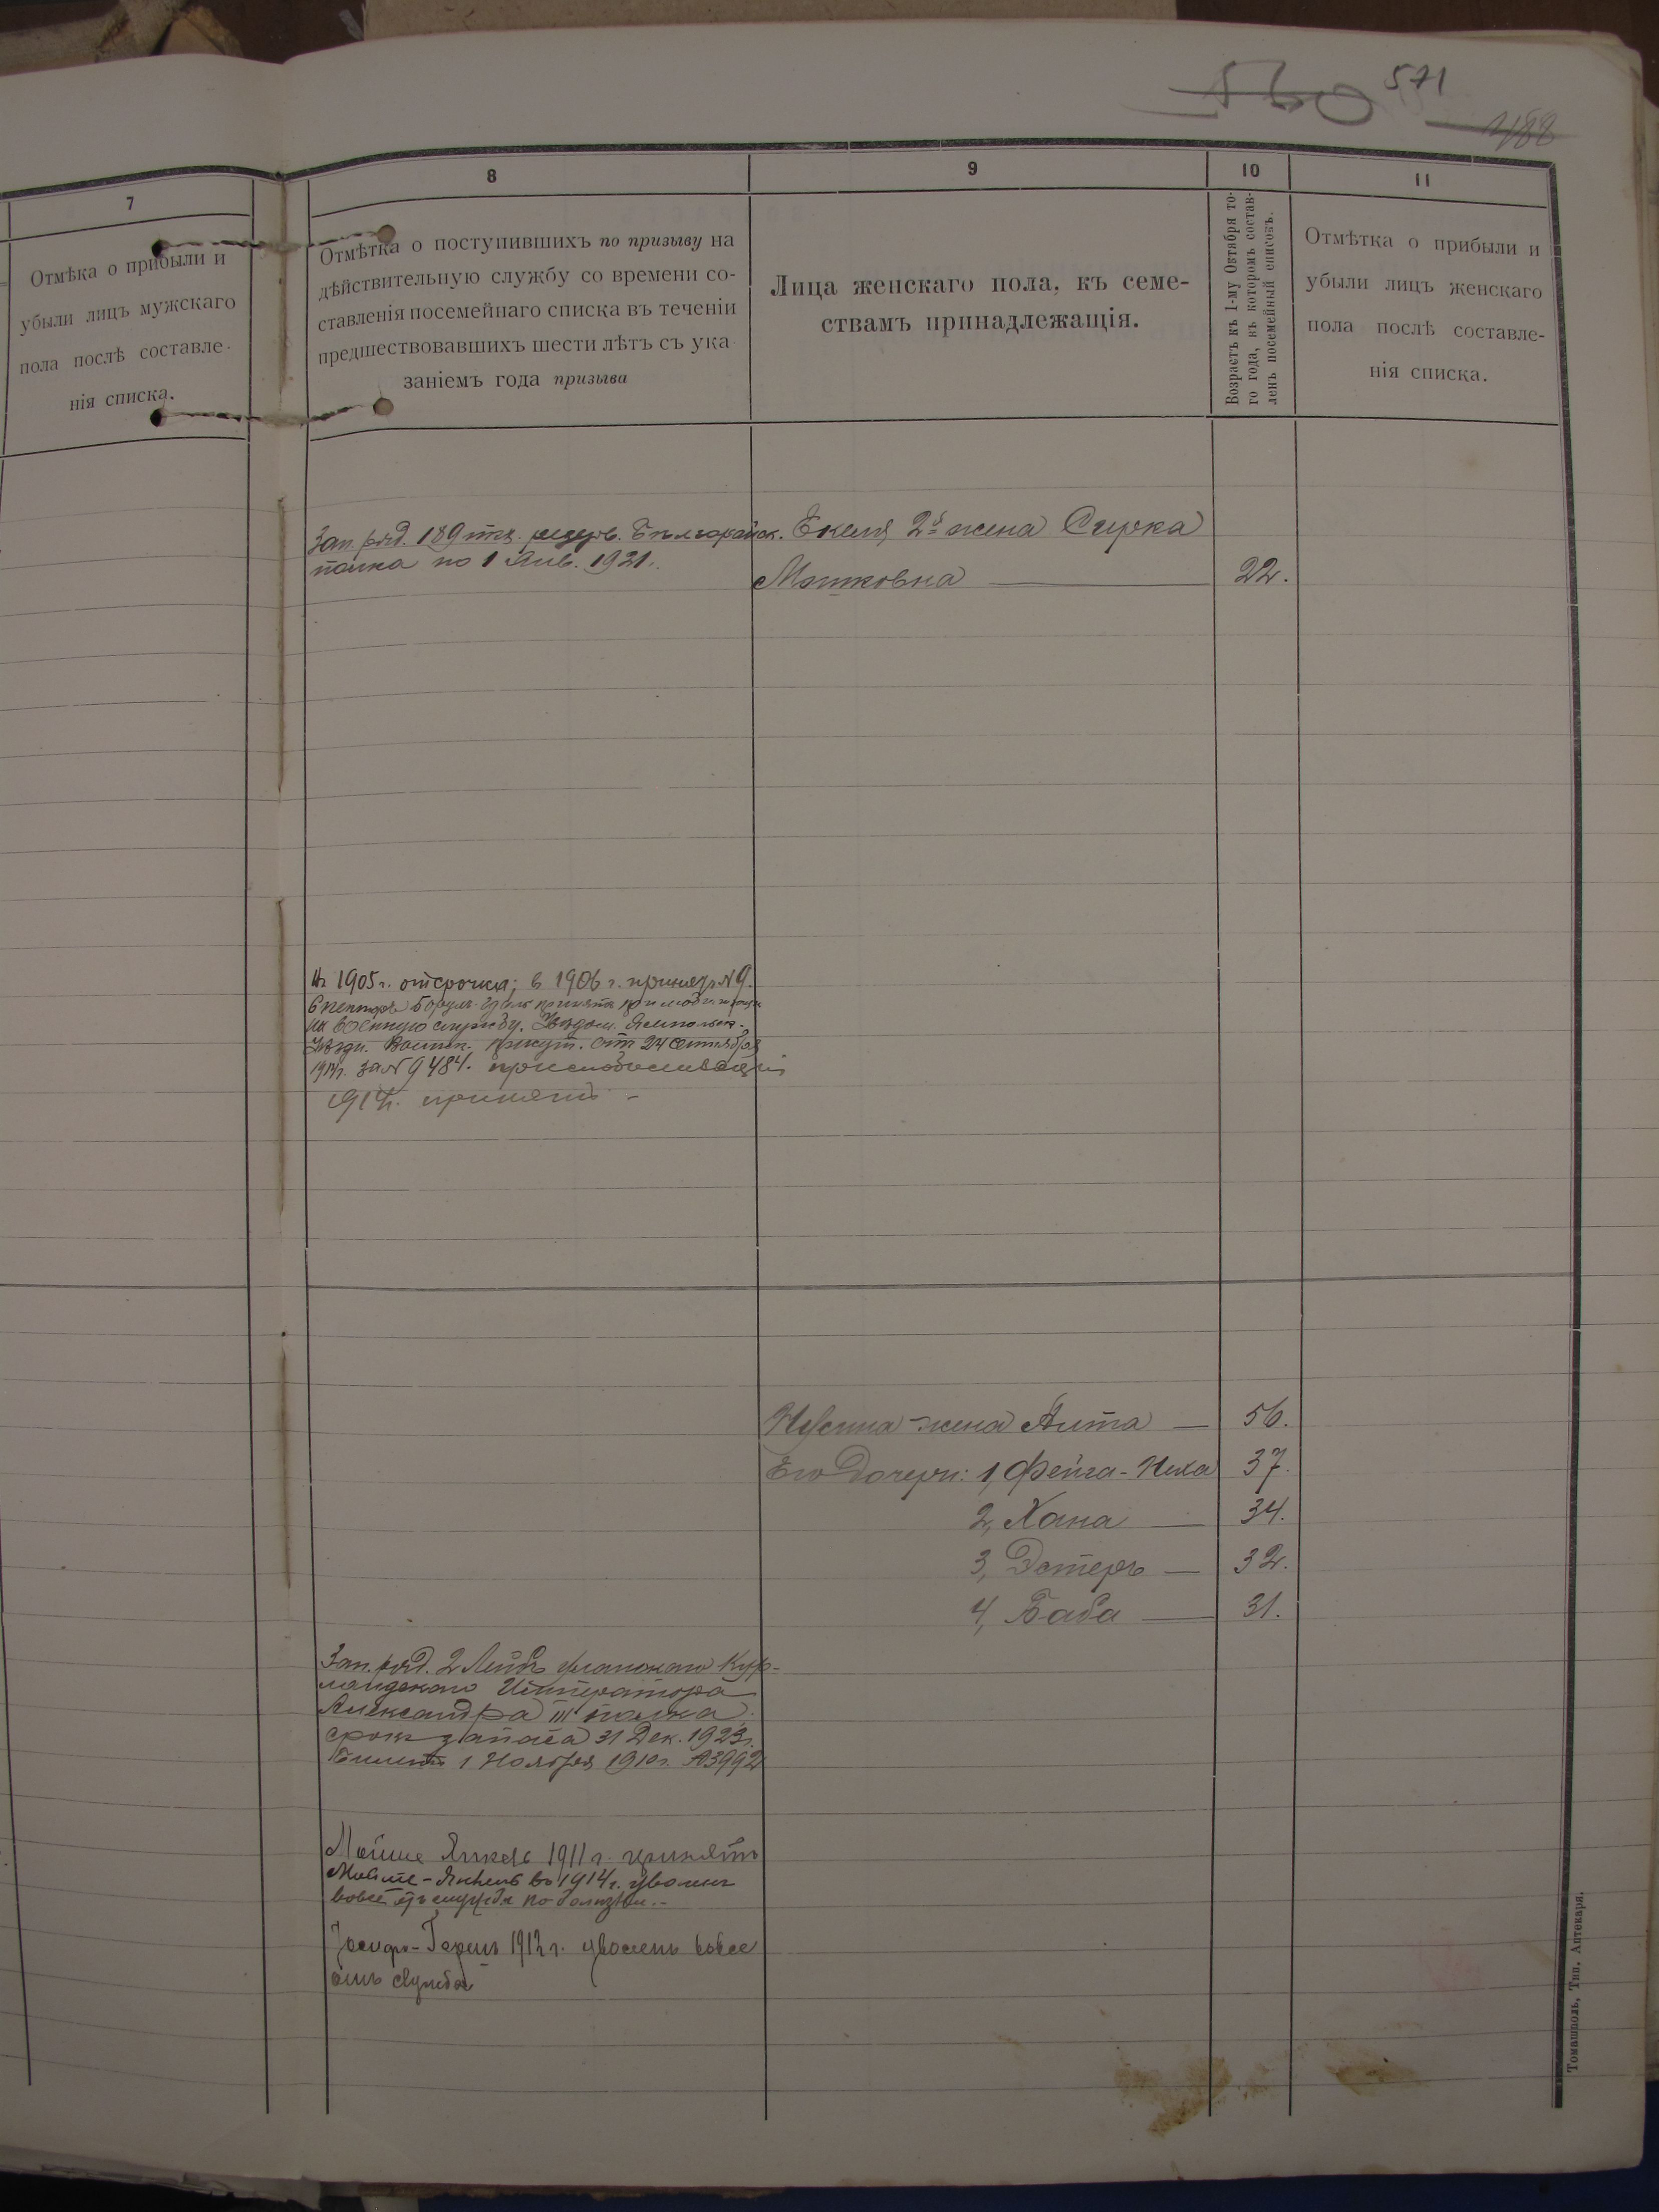 560 571
488
7
8
9
10
11
Отмѣка о прибыли и
убыли лицъ мужскаго
пола послѣ составле-
нія списка.
Отмѣтка о поступившихъ по призыву на
дѣйствительную службу со времени со-
ставленія посемейнаго списка въ теченіи
предшествовавшихъ шести лѣтъ съ ука
заніемъ года призыва
Лица женскаго пола, къ семе-
ствамъ принадлежащія.
Возрастъ къ 1-му Октября то-
го года, къ которомъ состав-
ленъ посемейный списокъ.
Отмѣтка о прибыли и
убыли лицъ женскаго
пола послѣ составле-
нія списка.
Зап. ряд. 189 пѣх. резерв. Бѣлгорайск.
полка по 1 Янв. 1921.
Екеля 2я жена Сурка
Мошковна 22.
въ 1905 г. отсрочка; в 1906 г. принятъ №9.
принятъ при мобилизации
на военную службу. Увѣдом. Ямпольск.
Уѣздн. Воинск. присут. от 24 Сентября
1914 г. за № 9484. при мобилизаціи
1914 г. принятъ -
Нусина жена Анта — 56.
Его дочери: 1, Фейга-Неха 37.
2, Хана — 34.
3, Эстеръ — 32.
4, Баба — 31.
Зап. ряд. 2 Лейбъ уланскаго Кур-
ляндскаго Императора
Александра III полка.
срокъ запаса 31 Дек. 1923 г.
Билетъ 1 Ноября 1910 г. №3992
Мойше Янкель 1911 г. принятъ
Мойше-Янкель въ 1914 г. уволенъ
вовсе отъ службы по болезни.-
Іосифъ-Гершъ 1912 г. уволенъ вовсе
отъ службы
Томашполь, Тип. Аптекаря.